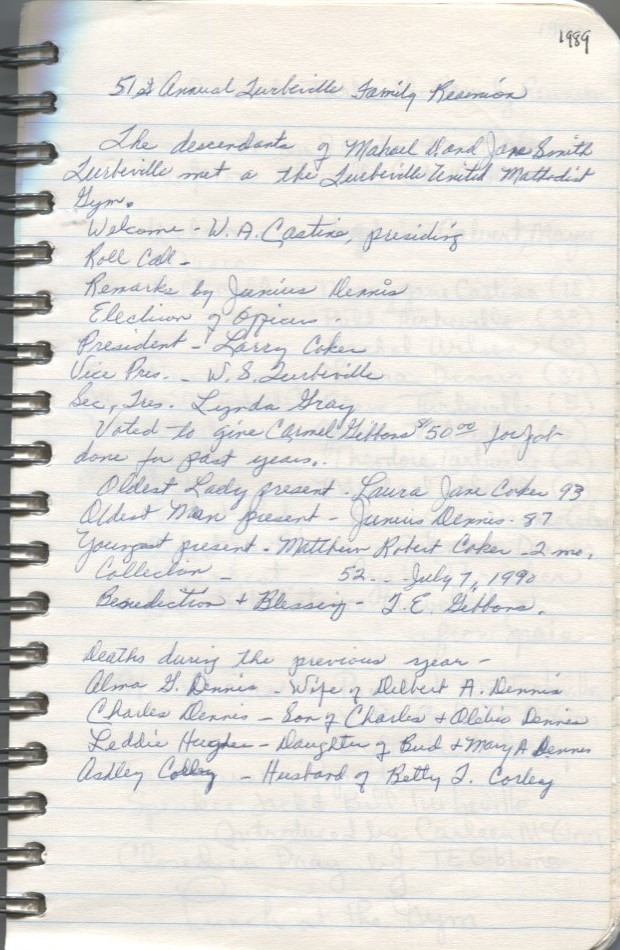 1989
51st Annual Turbeville Family Reunion
The descendants of Mahael D. and Jane Smith
Turbeville met a the Turbeville United Mathodist
Gym.
Welcome - W. A. Castine, presiding
Roll Call -
Remarks by Junius Dennis
Election of Officers
President - Larry Coker
Vice Pres. - W. S. Turbeville
Sec, Tres. Lynda Gray
Voted to give Carmel Gibbons $50.00 for job
done for past years..
Oldest Lady present - Laura Jane Coker 93
Oldest Man present - Junius Dennis - 87
Youngest present - Matthew Robert Coker - 2 mo.
Collection - 52.. - July 7, 1990
Benediction & Blessing - T. E. Gibbons.
Deaths during the previous year -
Alma G. Dennis - Wife of Delbert A. Dennis
Charles Dennis - Son of Charles & Dennis
Leddie Hughes - Daughter of Bud & Mary A Dennis
Ashley Corley - Husband of Betty T. Corley